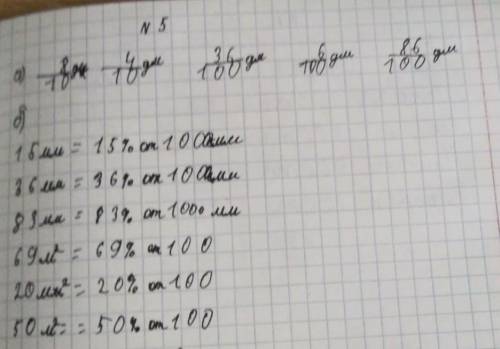 № 5
а) 8/10 дм 4/10 дм 36/100 дм 6/100 дм 86/100 дм
б)
15 мм = 15% от 100 мм
36 мм = 36% от 100 мм
83 мм = 83% от 1000 мм
69 м² = 69% от 100
20 мм² = 20% от 100
50 м² = = 50% от 100